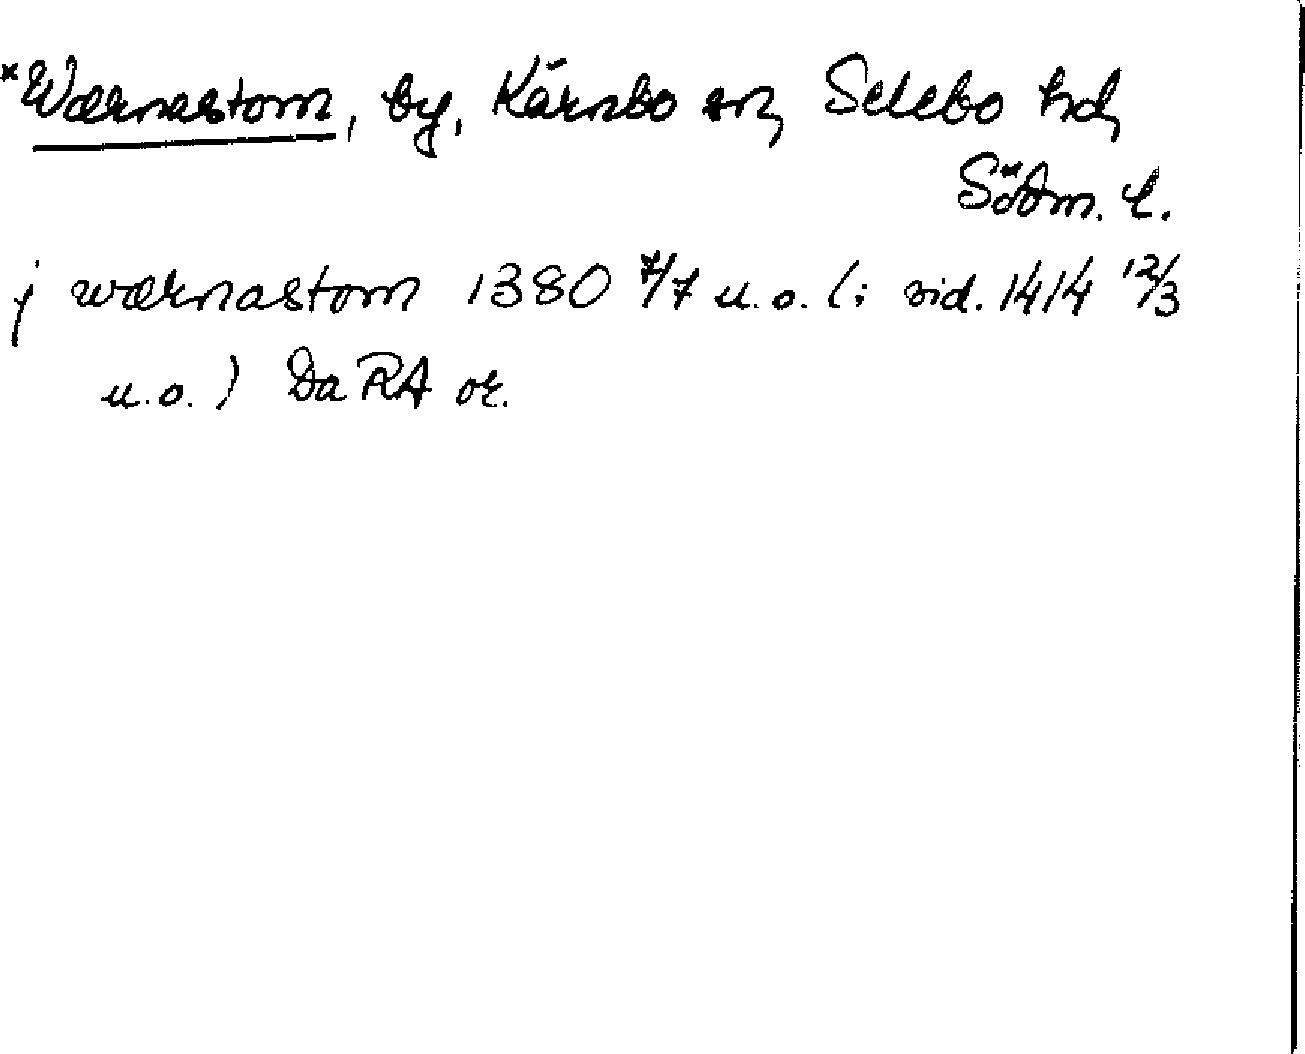 *Wærnastom, by, Kärnbo sn, Selebo hd,
Södm. l.
j wærnastom 1380 7/7 u.o. (i vid. 1414 12/3
u.o.) Da RA or.